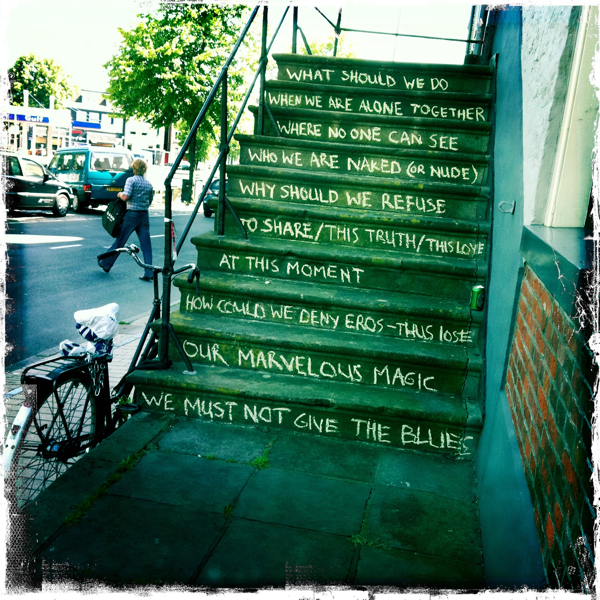 WHAT SHOULD WE DO
WHEN WE ARE ALONE TOGETHER
WHERE NO ONE CAN SEE
WHO WE ARE NAKED (OR NUDE)
WHY SHOULD WE REFUSE
TO SHARE/THIS TRUTH/THIS LOVE
AT THIS MOMENT
HOW COULD WE DENY EROS-THUS lOSE
OUR MARVELOUS MAGIC
WE MUST NOT GIVE THE BLUES
Gulf